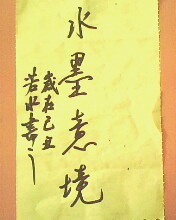 水墨意境
歲在己丑
若水書